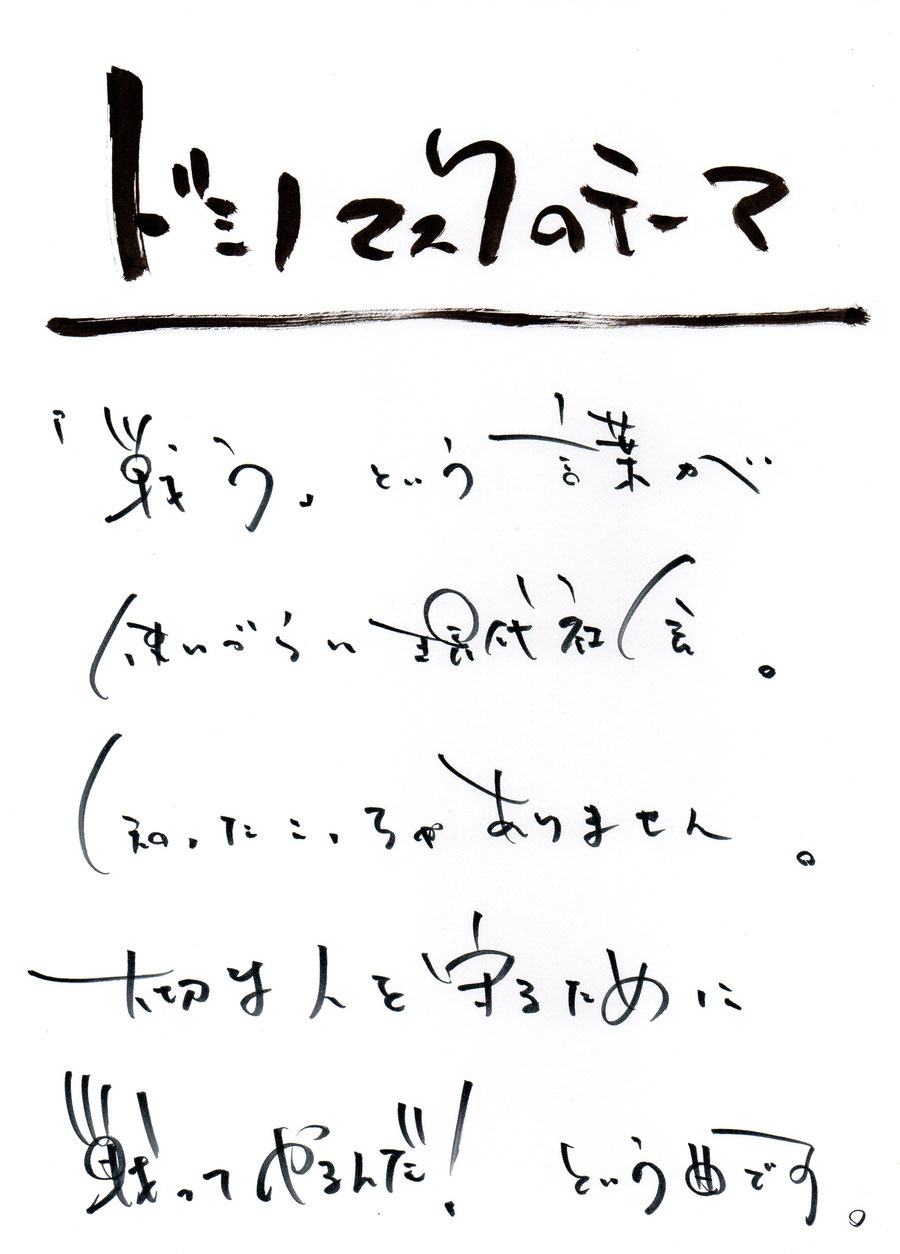 ドミノマスクのテーマ
「戦う」という言葉が
使いづらい現代社会。
知ったこっちゃありません。
大切な人を守るために
戦ってやるんだ!という曲です。